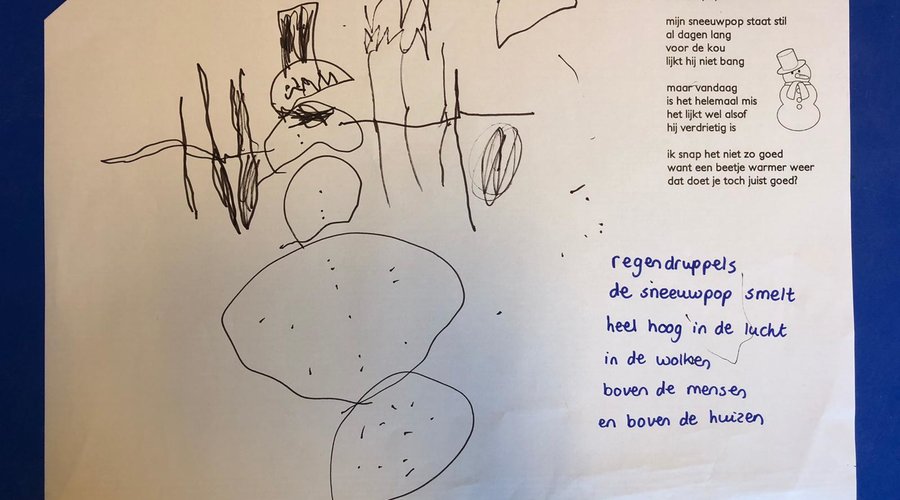 mijn sneeuwpop staat stil
al dagen lang
voor de kou
lijkt hij niet bang
maar vandaag
is het helemaal mis
het lijkt wel alsof
hij verdrietig is
ik snap het niet zo goed
want een beetje warmer weer
dat doet je toch juist goed?
regendruppels
de sneeuwpop smelt
heel hoog in de lucht
in de wolken
boven de mensen
en boven de huizen